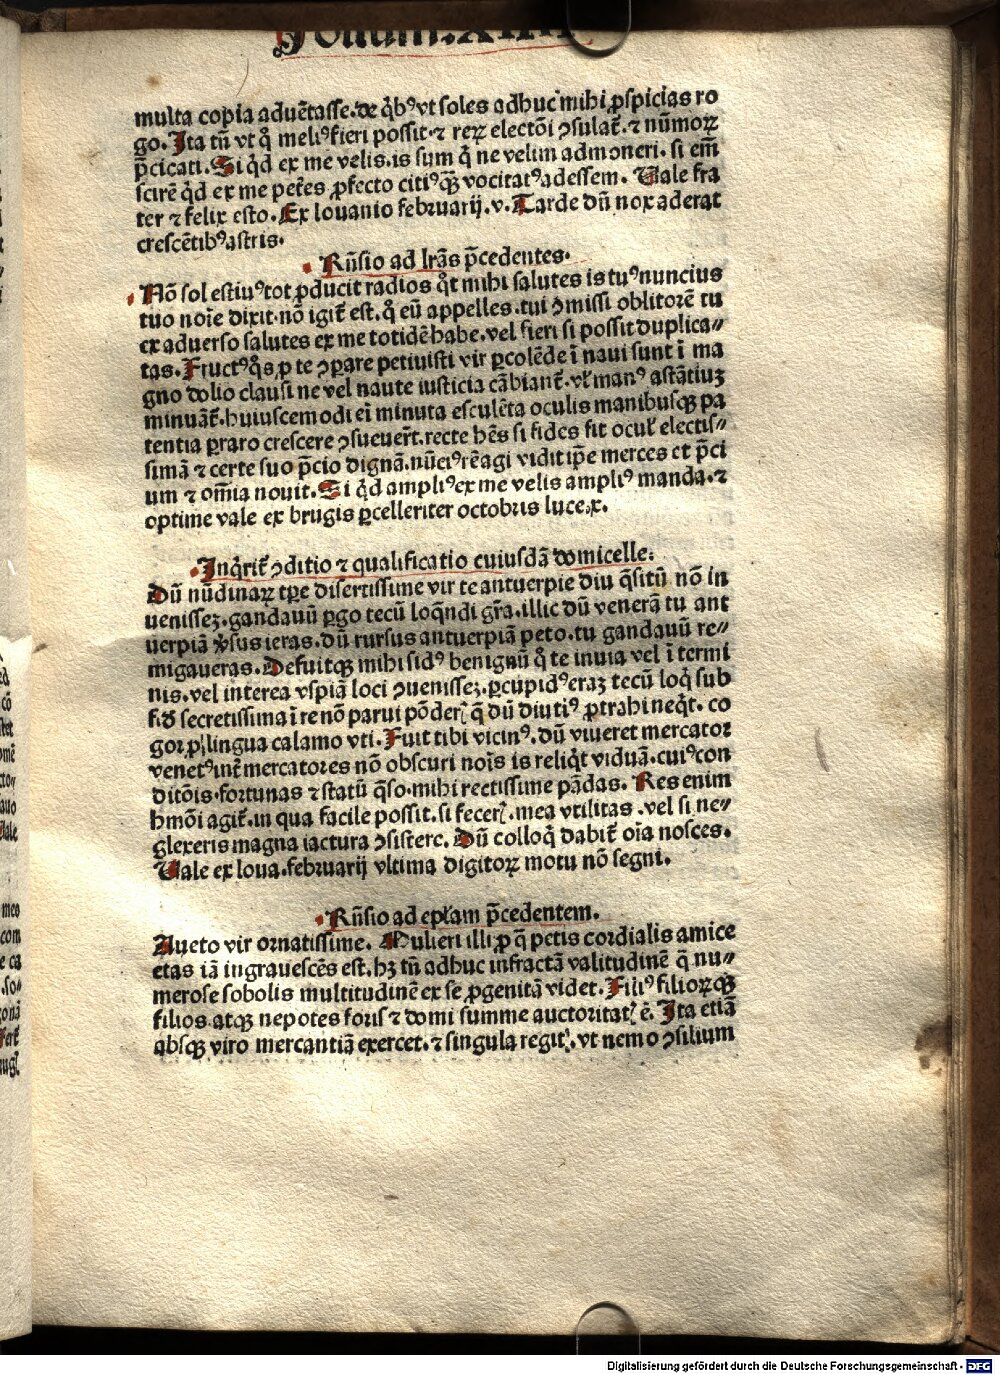 Folium.XIIII
multa copia aduētasse.de q̄bꝰ vt soles adhuc mihi ꝓspicias ro
go. Ita tn̄ vt q̄ meliꝰ fieri possit ⁊ reꝝ electōi ↄsulat̄. ⁊ nūmoꝝ
p̄cicati. Si q̄d ex me velis. is sum q̄ ne velim admoneri. si em̄
scirē q̄d ex me pet̄es ꝓfecto citiꝰ qꝫ̄ vocitatꝰ adessem. Uale fra
ter ⁊ felix esto. Ex louanio februarij.v. Tarde dū nox aderat
crescētibꝰ astris.
Rn̄sio ad lr̄as p̄cedentes.
Nō sol estiuꝰ tot ꝓducit radios q̄t mihi salutes is tuꝰ nuncius
tuo noīe dixit. nō igit̄ est. q̄ eū appelles. tui ↄmissi oblitorē tu
ex aduerso salutes ex me totidē habe. vel fieri si possit duplica⸗
tas. Fructꝰ q̄s ꝑ te ↄꝑare petiuisti vir ꝑcolēde ī naui sunt ī ma
gno dolio clausi ne vel naute iusticia cābiant̄. vl̄ manꝰ astātiuꝫ
minuāt̄. huiuscemodi eī minuta esculēta oculis manibusqꝫ pa
tentia ꝑraro crescere ↄsueuer̄t. recte hēs si fides fit ocul̄ electis⸗
simā ⁊ certe suo p̄cio dignā. nūciꝰ rēagi vidit ip̄e merces et p̄ci
um ⁊ om̄ia nouit. Si q̄d ampliꝰ ex me velis ampliꝰ manda. ⁊
optime vale ex brugis ꝑcelleriter octobris luce.x.
Inq̄rit̄ ↄditio ⁊ qualificatio cuiusdā domicelle.
Dū nūdinaꝝ tꝑe disertissime vir te antuerpie diu q̄sitū nō in
uenisseꝫ. gandauū ꝑgo tecū loq̄ndi gr̄a. illic dū venerā tu ant
uerpiā ꝟsus ieras. dū rursus antuerpiā peto. tu gandauū re⸗
migaueras. Defuitqꝫ mihi sidꝰ benignū q̄ te inuia vel ī termi
nis. vel interea vspiā loci ↄuenisseꝫ. ꝑcupidꝰ eraꝫ tecū loq̄ sub
fid̄ secretissima ī re nō parui pōderꝭ q̄ dū diutiꝰ ꝓtrahi neq̄t. co
gor ꝓ lingua calamo vti. Fuit tibi vicinꝰ. dū viueret mercator
venetꝰ int̄ mercatores nō obscuri noīs is reliq̄t viduā. cuiꝰ con
ditōis fortunas ⁊ statū q̄so. mihi rectissime pādas. Res enim
hmōi agit̄. in qua facile possit. si fecerꝭ. mea vtilitas. vel si ne⸗
glexeris magna iactura ↄsistere. Dū colloq̄ dabit̄ oīa nosces.
Uale ex loua. februarij vltima digitoꝝ motu nō segni.
Rn̄sio ad epl̄am p̄cedentem.
Aueto vir ornatissime. Mulieri illi ꝓ q̄ petis cordialis amice
etas iā ingrauescēs est. hꝫ tn̄ adhuc infractā valitudinē q̄ nu⸗
merose sobolis multitudinē ex se ꝓgenitā videt. Filiꝰ filioꝝqꝫ
filios atqꝫ nepotes foris ⁊ domi summe auctoritatꝭ ē. Ita etiā
absqꝫ viro mercantiā exercet. ⁊ singula regit. vt nemo ↄsilium
Digitalisierung gefördert durch die Deutsche Forschungsgemeinschaft - DFG